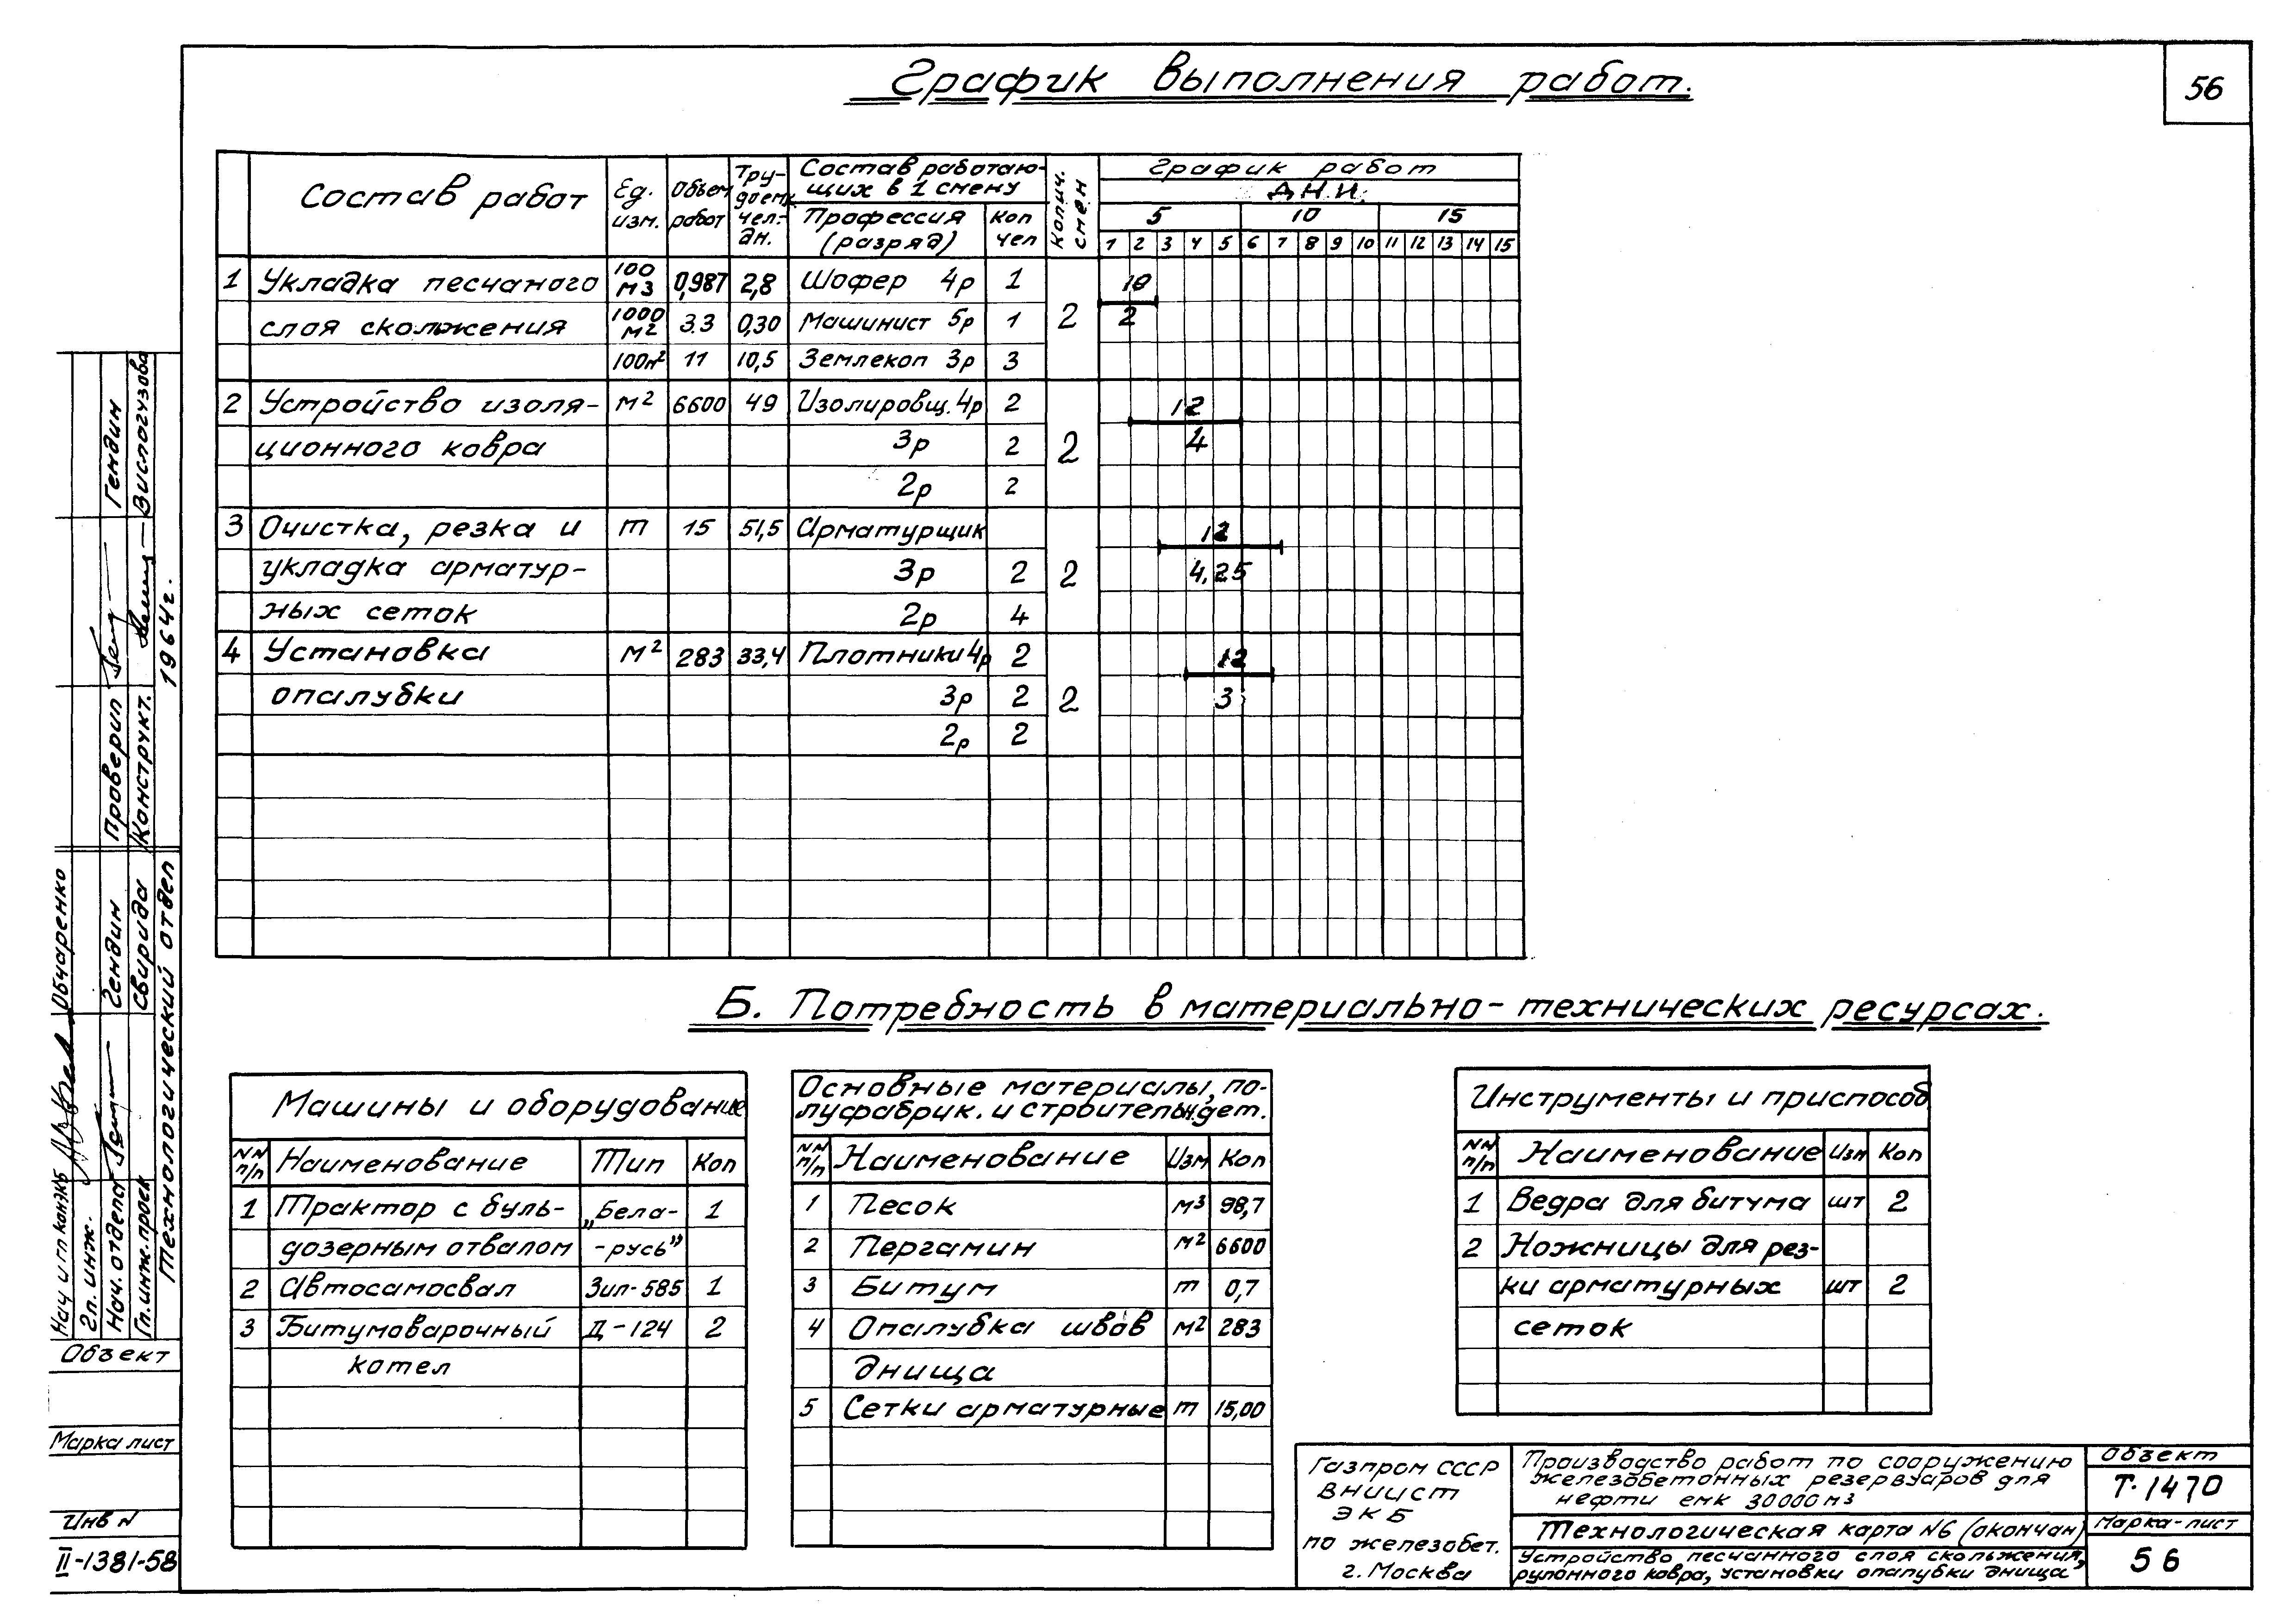 График выполнения работ.
56
Состав работ
Ед. изм.
Объем работ
Тру-
доемк.
чел.-
дн.
Состав работаю-
щих в 1 смену
Профессия
(разряд)
Кол
чел
Колич.
смен
График работ
Дни.
5 10 15
1 2 3 4 5 6 7 8 9 10 11 12 13 14 15
1 Укладка песчаного 100 м3 0,987 2,8 Шофер 4р 1 10
слоя скольжения 1000 м2 3.3 0,30 Машинист 5р 1 2 2
100м2 11 10,5 Землекоп 3р 3
2 Устройство изоля- м2 6600 49 Изолировщ. 4р 2 12
ционного ковра 3р 2 2 4
2р 2
3 Очистка, резка и т 15 51,5 Арматурщик 12
укладка арматур- 3р 2 2 4,25
ных сеток 2р 4
4 Установка м2 283 33,4 Плотники 4р 2 12
опалубки 3р 2 2 3
2р 2
Б. Потребность в материально-технических ресурсах.
Машины и оборудование
NN п/п Наименование Тип Кол
1 Трактор с буль- „Бела- 1
дозерным отвалом -русь”
2 Автосамосвал Зил-585 1
3 Битумоварочный Д-124 2
котел
Основные материалы, по-
луфабрик. и строительн. дет.
NN п/п Наименование Изм Кол
1 Песок м3 98,7
2 Пергамин м2 6600
3 Битум т 0,7
4 Опалубка швов м2 283
днища
5 Сетки арматурные т 15,00
Инструменты и приспособ
NN п/п Наименование Изм Кол
1 Ведра для битума шт 2
2 Ножницы для рез-
ки арматурных шт 2
сеток
Газпром СССР
ВНИИСТ
ЭКБ
по железобет.
г. Москва
Производство работ по сооружению
железобетонных резервуаров для
нефти емк 30000 м3
Технологическая карта N6 (окончан)
Устройство песчанного слоя скольжения,
рулонного ковра, установки опалубки днища
Объект
Т-1470
Марка-лист
56
Нач и гл кон ЭКБ Овчаренко
Гл. инж.
Нач. отдела Гендин
Гл. инж. проек Свирида
Технологический отдел
Проверил Гендин
Конструкт. Вислогузова
1964г.
Объект
Марка лист
Инв N
II-1381-58